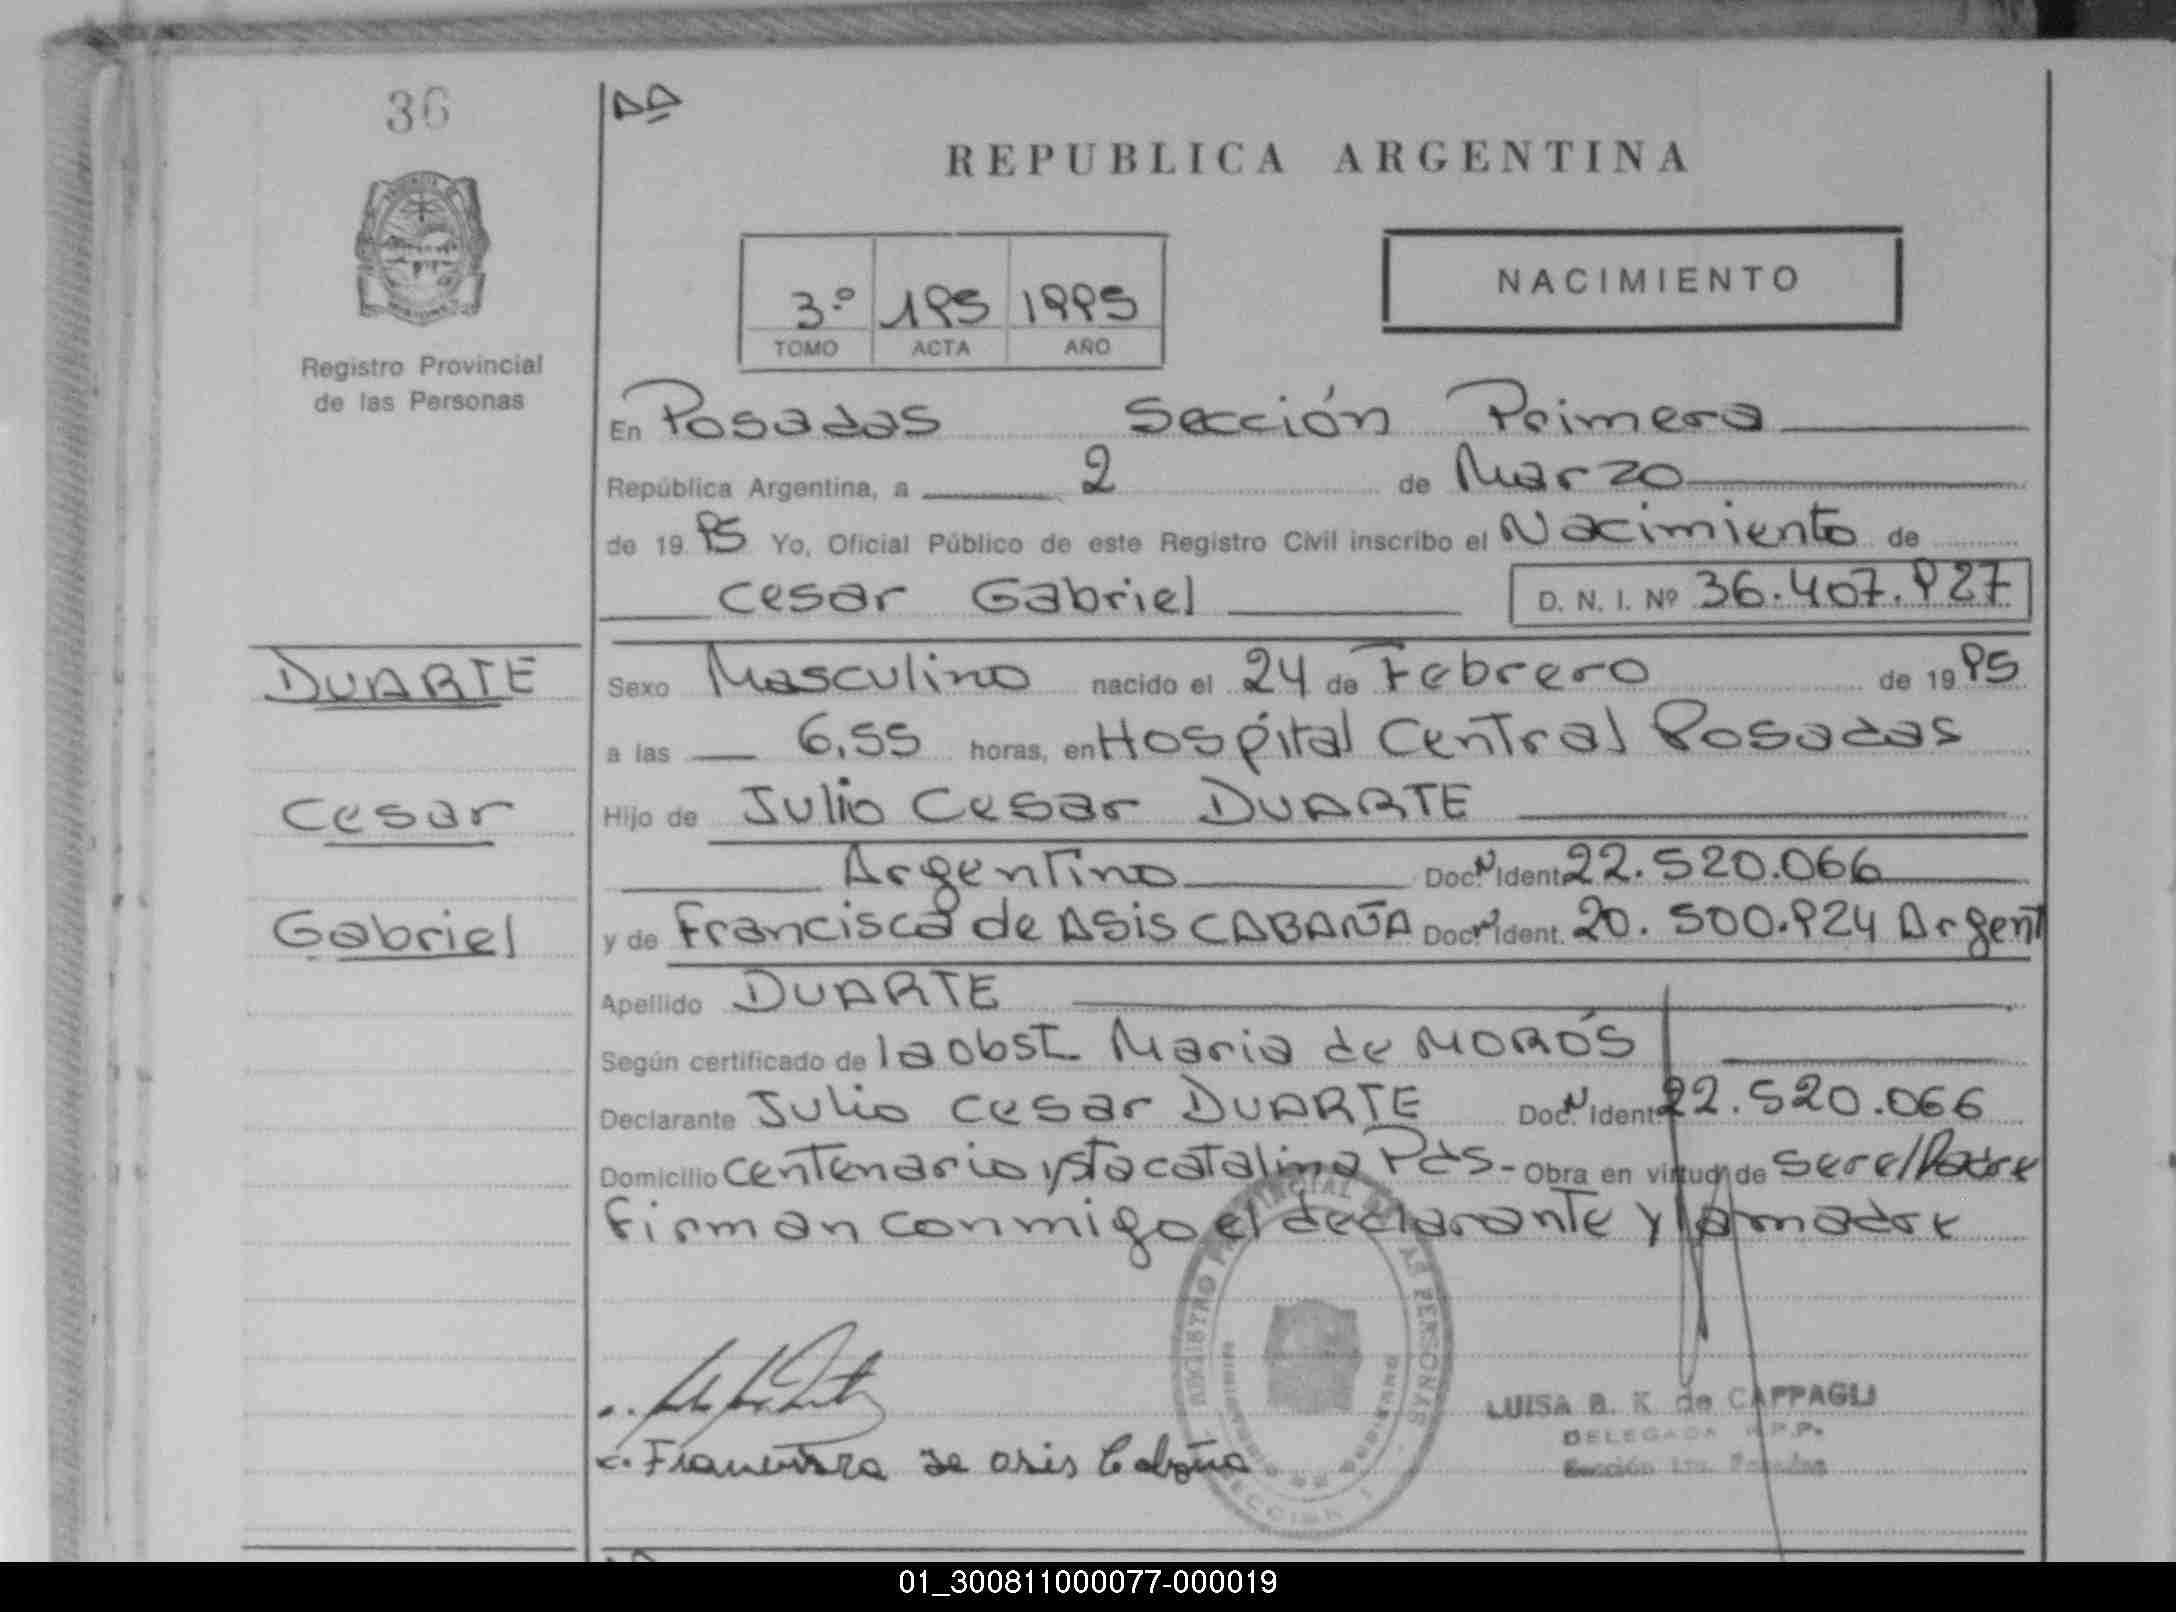 36
REPUBLICA ARGENTINA
3.º 195 1995
TOMO ACTA AÑO
NACIMIENTO
Registro Provincial
de las Personas
En Posadas Sección Primera
República Argentina, a 2 de Marzo
de 19 95 Yo, Oficial Público de este Registro Civil inscribo el Nacimiento de
Cesar Gabriel D. N. I. Nº 36.407.927
DUARTE
Sexo Masculino nacido el 24 de Febrero de 19 95
a las 6,55 horas, en Hospital Central Posadas
Cesar
Hijo de Julio Cesar DUARTE
Argentino Doc. N Ident. 22.520.066
Gabriel
y de Francisca de ASis CABAÑA Doc. N Ident. 20.500.924 Argent
Apellido DUARTE
Según certificado de la obst. Maria de MOROS
Declarante Julio Cesar DUARTE Doc. N Ident. 22.520.066
Domicilio Centenario y Sta Catalina Pdas- Obra en virtud de ser el Padre
Firman conmigo el declarante y la madre
REGISTRO PROVINCIAL DE LAS PERSONAS
Francisca de asis Cabaña
LUISA B. K. de CAPPAGLI
DELEGADA R.P.P.
Sección 1ra. Posadas
01_300811000077-000019